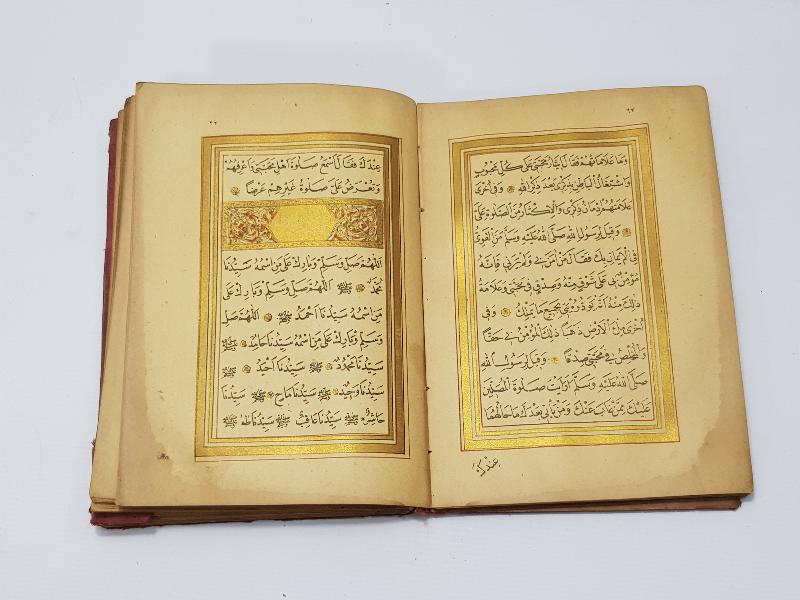 ٢٢
وَمَا عَلَامَاتُهُمْ فَقَالَ اِيثَارُ مَحَبَّتِي عَلَى كُلِّ مَحْبُوبٍ
وَاشْتِغَالُ الْبَاطِنِ بِذِكْرِي بَعْدَ ذِكْرِ اللهِ وَفِي اُخْرَى
عَلَامَتُهُمْ اِدْمَانُ ذِكْرِي وَالْاِكْثَارُ مِنَ الصَّلٰوةِ عَلَيَّ
وَقِيلَ لِرَسُولِ اللهِ صَلَّى اللهُ عَلَيْهِ وَسَلَّمَ مَنِ الْقَوِيُّ
فِي الْاِيمَانِ بِكَ فَقَالَ مَنْ اٰمَنَ بِي وَلَمْ يَرَنِي فَاِنَّهُ
مُؤْمِنٌ بِي عَلَى شَوْقٍ مِنْهُ وَصِدْقٍ فِي مَحَبَّتِي وَعَلَامَةُ
ذٰلِكَ مِنْهُ اَنَّهُ يَوَدُّ رُؤْيَتِي بِجَمِيعِ مَا يَمْلِكُ وَفِي
اُخْرَى مِلْءَ الْاَرْضِ ذَهَبًا ذٰلِكَ الْمُؤْمِنُ بِي حَقًّا
وَالْمُخْلِصُ فِي مَحَبَّتِي صِدْقًا وَقِيلَ لِرَسُولِ اللهِ
صَلَّى اللهُ عَلَيْهِ وَسَلَّمَ اَرَاَيْتَ صَلٰوةَ الْمُصَلِّينَ
عَلَيْكَ مِمَّنْ غَابَ عَنْكَ وَمَنْ يَأْتِي بَعْدَكَ مَا حَالُهُمَا
عِنْدَكَ
عِنْدَكَ فَقَالَ اَسْمَعُ صَلٰوةَ اَهْلِ مَحَبَّتِي وَاَعْرِفُهُمْ
وَتُعْرَضُ عَلَيَّ صَلٰوةُ غَيْرِهِمْ عَرْضًا
اَللّٰهُمَّ صَلِّ وَسَلِّمْ وَبَارِكْ عَلَى مَنِ اسْمُهُ سَيِّدُنَا
مُحَمَّدٌ ﷺ اَللّٰهُمَّ صَلِّ وَسَلِّمْ وَبَارِكْ عَلَى
مَنِ اسْمُهُ سَيِّدُنَا اَحْمَدُ ﷺ اَللّٰهُمَّ صَلِّ
وَسَلِّمْ وَبَارِكْ عَلَى مَنِ اسْمُهُ سَيِّدُنَا حَامِدٌ ﷺ
سَيِّدُنَا مَحْمُودٌ ﷺ سَيِّدُنَا اَحِيدٌ ﷺ
سَيِّدُنَا وَحِيدٌ ﷺ سَيِّدُنَا مَاحٍ ﷺ سَيِّدُنَا
حَاشِرٌ ﷺ سَيِّدُنَا عَاقِبٌ ﷺ سَيِّدُنَا طٰهٰ ﷺ